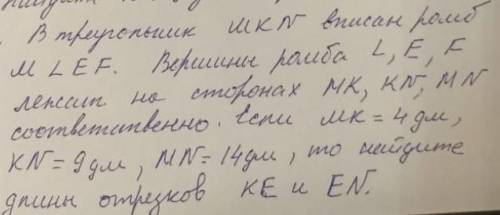 В треугольник MKN вписан ромб
MLEF. Вершины ромба L, E, F
лежат на сторонах MK, KN, MN
соответственно. Если MK = 4 дм,
KN = 9 дм, MN = 14 дм, то найдите
длины отрезков KE и EN.